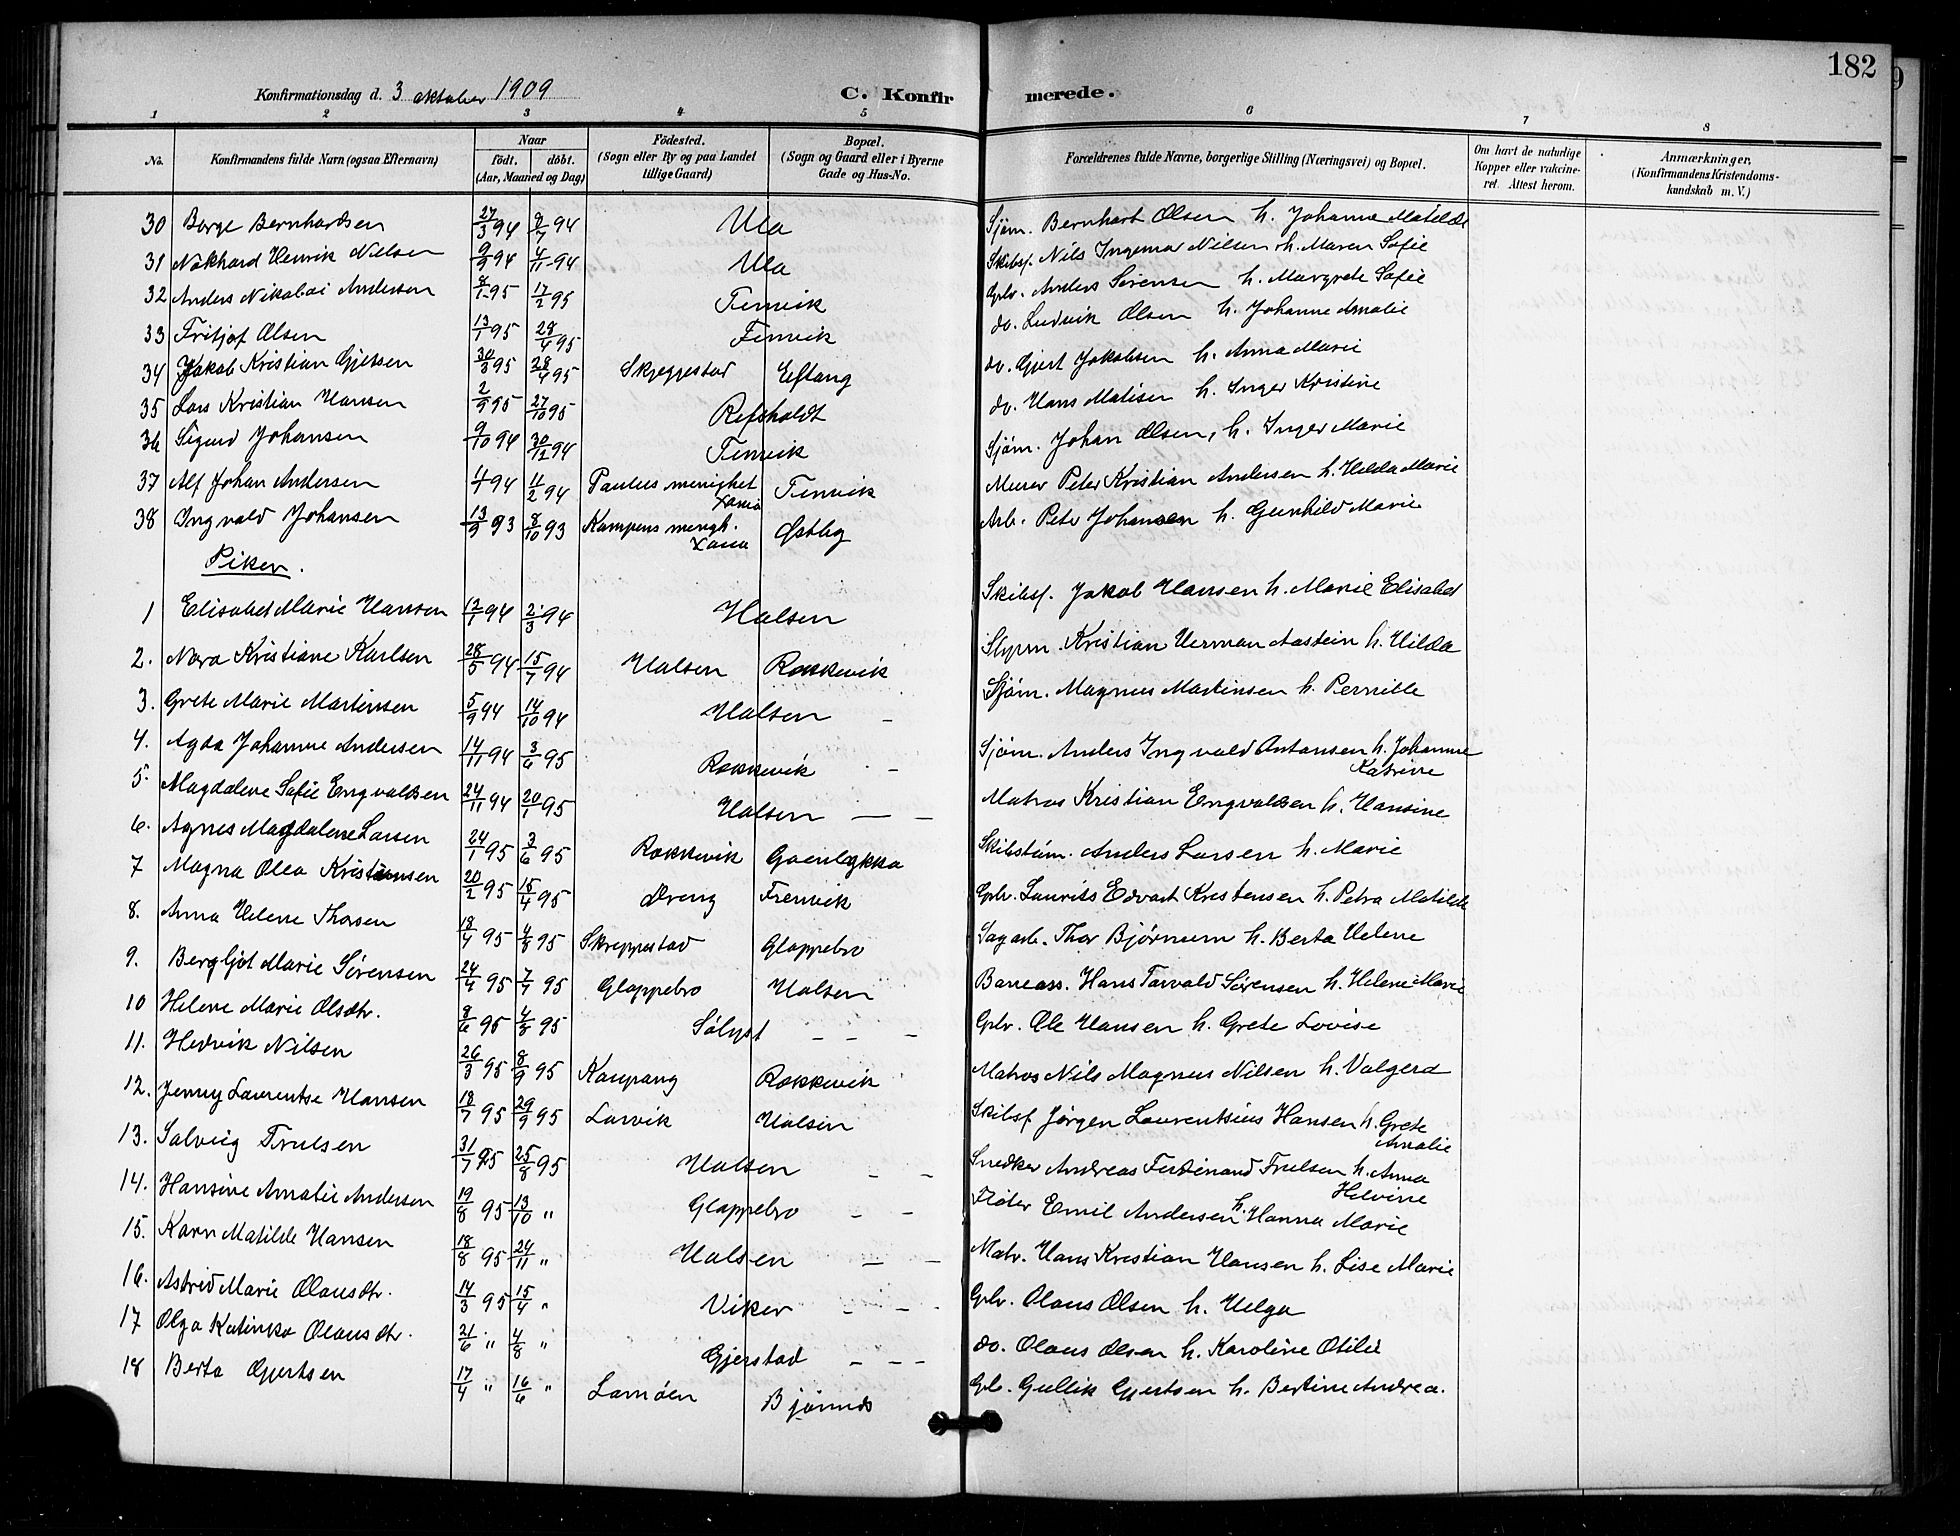 182
Konfirmationsdag d. 3 oktober 1909 C. Konfirmerede.
1 2 3 4 5 6 7 8
No. Konfirmandens fulde Navn (ogsaa Efternavn) Naar født. døbt. (Aar, Maaned og Dag) Fødested. (Sogn eller By og paa Landet tillige Gaard) Bopæl. (Sogn og Gaard eller i Byerne Gade og Hus-No. Forældrenes fulde Navne, borgerlige Stilling (Næringsvei) og Bopæl. Om havt de naturlige Kopper eller vakcineret. Attest herom. Anmærkninger, (Konfirmandens Kristendomskundskab m. V.)
30 Borge Bernhardsen 27/3 94 8/7 94 Ula Sjøm. Bernhart Olsen h. Johanne Matilde
31 Nökhard Henrik Nielsen 9/9 94 4/11 94 Ula Skibsf. Nils Ingemar Nilsen h. Maren Sofie
32 Anders Nikolai Andersen 8/1 95 17/2 95 Temvik Gbr. Anders Sørensen h. Margrete Sofie
33 Fritjof Olsen 13/1 95 28/4 95 Temvik do. Ludvik Olsen h. Johanne Amalie
34 Jakob Kristian Gjetsen 30/3 95 28/4 95 Skjeggestad Eftang do. Gjert Jakobsen h. Anna Marie
35 Lars Kristian Hansen 2/9 95 27/10 95 Refsholdt do. Hans Matisen h. Inger Kristine
36 Sigurd Johansen 9/10 94 30/12 94 Temvik Sjøm. Johan Olsen, h. Inger Marie
37 Alf Johan Andersen 1/1 94 11/2 94 Paulus menighet Xania Temvik Murer Peter Kristian Andersen h. Hilda Marie
38 Ingvald Johansen 13/9 93 8/10 93 Kampens mengh. Xania Østby Arb. Peter Johansen h. Gunhild Marie
Piker.
1 Elisabet Marie Hansen 13/1 94 2/3 94 Halsen Skibsf. Jakob Hansen h. Marie Elisabet
2. Nora Kristiane Karlsen 28/5 94 15/7 94 Halsen Rekkevik Styrm. Kristian Herman Aastein h. Hilda
3. Grete Marie Martinsen 5/9 94 14/10 94 Halsen – Sjøm. Magnus Martinsen h. Pernille
4. Agda Johanne Andersen 14/11 94 3/6 95 Rekkevik – Sjøm. Anders Ingvald Antonsen h. Johanne Katrine
5. Magdalene Sofie Engvaldsen 24/11 94 20/1 95 Halsen – – Matros Kristian Engvaldsen h. Hansine
6. Agnes Magdalene Larsen 24/1 95 3/6 95 Rekkevik Gaenløkka Skibstøm. Anders Larsen h. Marie
7 Magna Olea Kristiansen 20/2 95 15/4 95 Øreng Fremvik Gbr. Laurits Edvart Kristensen h. Petra Matilde
8. Anna Helene Thorsen 18/4 95 4/8 95 Skreppestad Gloppebro Sagarb. Thor Bjørnum h. Berta Helene
9. Bergljot Marie Sørensen 24/4 95 7/7 95 Gloppebro Halsen Baneass. Hans Torvald Sørensen h. Helene Marie
10 Helene Marie Olsdtr. 8/6 95 4/8 95 Sölyst – – – Gbr. Ole Hansen h. Grete Lovise
11. Hedvik Nilsen 26/3 95 8/9 95 Kaupang Rekkevik Matros Nils Magnus Nilsen h. Valgerd
12. Jenny Laurentse Hansen 18/7 95 29/9 95 Larvik Halsen Skibsf. Jørgen Laurentsius Hansen h. Grete Amalie
13. Solveig Trulsen 31/7 95 25/8 95 Halsen – – Snedker Andreas Ferdinand Trulsen h. Anna Helvine
14. Hansine Amalie Andersen 19/8 95 13/10 " Gloppebro – – Fløter Emil Andersen h. Hanna Marie
15. Karn Matilde Hansen 18/8 95 24/11 " Halsen – – Matr. Hans Kristian Hansen h. Lise Marie
16. Astrid Marie Olausdtr. 14/3 95 15/4 " Viker – – – Gbr. Olaus Olsen h. Helga
17 Olga Katinka Olausdtr. 21/6 " 4/8 " Gjerstad – – – do. Olaus Olsen h. Karoline Otilie
18 Berta Gjertsen 17/4 " 16/6 " Lamøen Bjønnes Gb. Gullik Gjertsen h. Bertine Andrea.